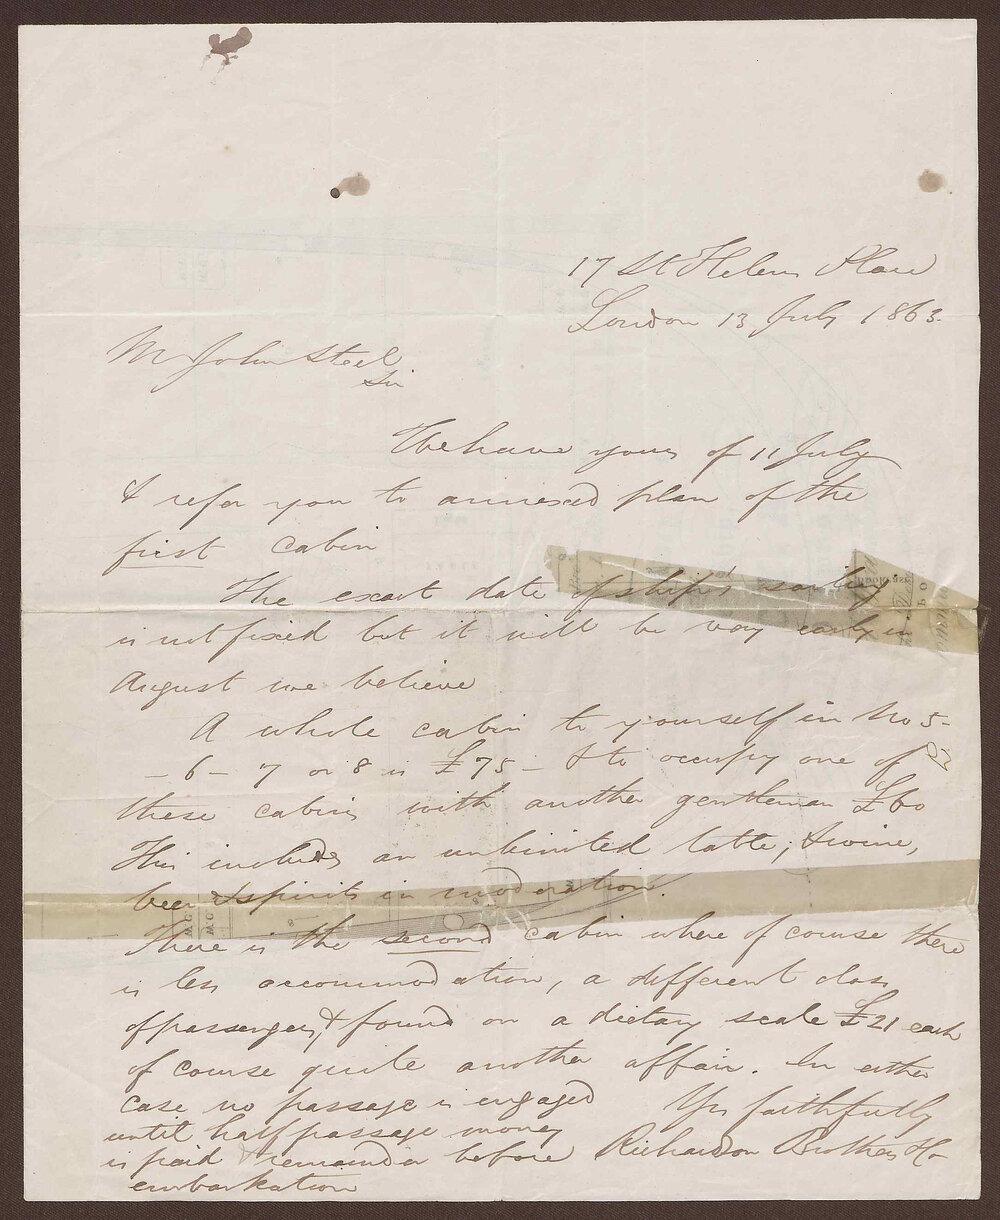 17 St Helens Place
London 13 July 1863.
Mr John Steel
Sir
We have yours of 11 July
& refer you to annexed plan of the
first cabin
The exact date of ship's sailing
is not fixed but it will be very early in
August we believe
A whole cabin to yourself in No 5-
- 6 - 7 or 8 is £75 - & to occupy one of
these cabins with another gentleman £60
This includes an unlimited table, & wine,
beer & spirits in moderation.
There is the second cabin where of course there
is less accommodation, a different class
of passengers, & found on a dietary scale £21 each
of course quite another affair. In either
case no passage is engaged
until half passage money
is paid & remainder before
embarkation
Yrs faithfully
Richardson Brothers & Co